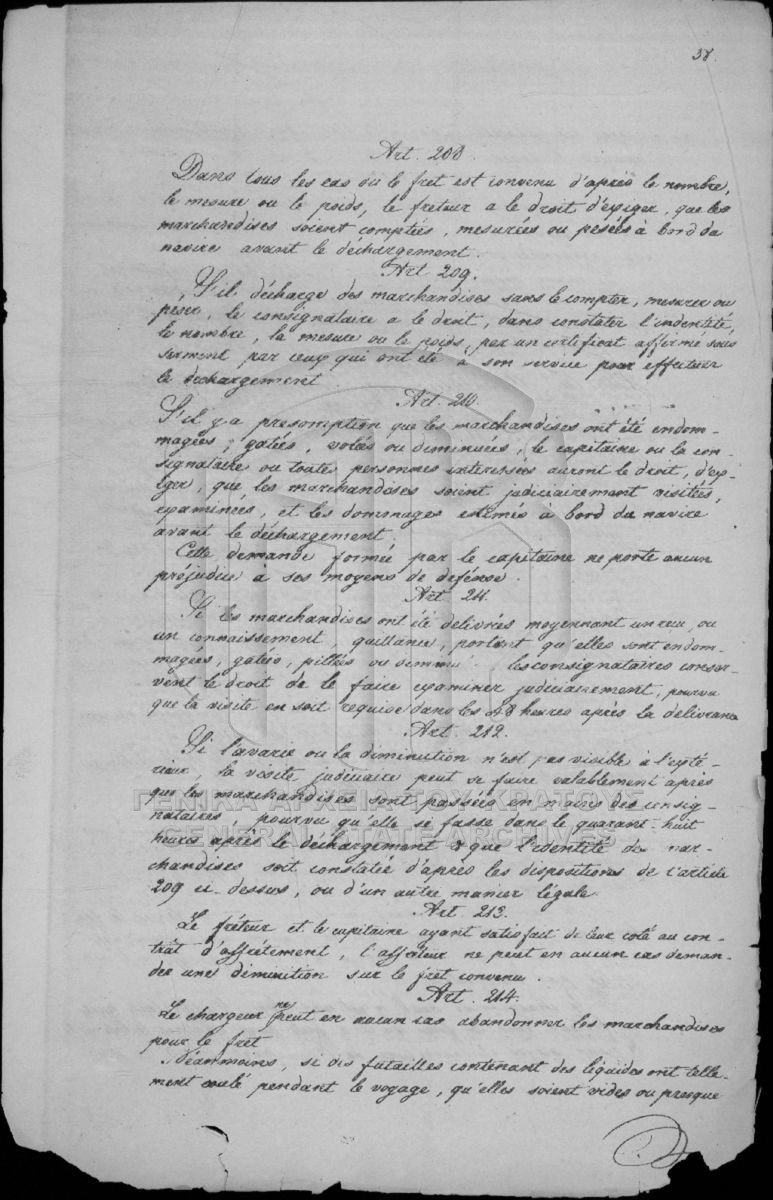 38.
Art. 208.
Dans tous les cas où le fret est convenu d'après le nombre,
le mesure ou le poids, le freteur a le droit d'exiger, que les
marchandises soient comptées, mesurées ou pesées à bord du
navire avant le déchargement.
Art. 209.
S'il décharge des marchandises sans le compter, mesurer ou
peser, le consignataire a le droit, dans constater l'indentité,
le nombre, la mesure ou le poids, par un certificat affirmé sous
serment par ceux qui ont été à son service pour effectuer
le dechargement
Art. 210.
S'il y a presomption que les marchandises ont été endom-
magées, gatées, volées ou diminuées, le capitaine ou le con-
signataire ou toute personnes interessées auront le droit, d'exi-
ger, que les marchandises soient judiciairement visitées,
examinées, et les dommages estimés à bord du navire
avant le déchargement.
Cette demande formée par le capitaine ne porte aucun
préjudice à ses moyens de défense.
Art. 211.
Si les marchandises ont été delivrés moyennant un recu, ou
un connaissement, quittance, portant qu'elles sont endom-
magées, gatées, pillées ou les consignataires conser-
vent le droit de le faire examiner judiciairement, pourvu
que la visite en soit requise dans les 48 heures après la delivrance
Art. 212.
Si l'avarie ou la diminution n'est pas visible à l'exté-
rieur, la visite judiciaire peut se faire valablement après
que les marchandises sont passées en mains des consig-
nataires, pourvu qu'elle se fasse dans le quarant-huit
heures après le déchargement & que l'identité des mar-
chandises soit constatée d'après les dispositions de l'article
209 ci-dessus, ou d'un autre manier légale.
Art. 213.
Le fréteur et le capitaine ayant satisfait de leur coté au con-
trat d'affrétement, l'affréteur ne peut en aucun cas deman-
der une diminution sur le fret convenu.
Art. 214.
Le chargeur ne peut en aucun cas abandonner les marchandises
pour le fret
Néanmoins, si des futailles contenant des liquides ont telle-
ment coulé pendant le voyage, qu'elles soient vides ou presque
ΓΕΝΙΚΑ ΑΡΧΕΙΑ ΤΟΥ ΚΡΑΤΟΥΣ
GENERAL STATE ARCHIVES